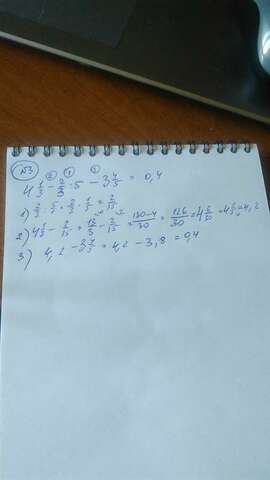 №3
② ① ③
4 1/3 - 2/3 : 5 - 3 4/5 = 0,4
1) 2/3 : 5/1 = 2/3 · 1/5 = 2/15
2) 4 1/3 - 2/15 = 13/3 - 2/15 = 130-4/30 = 126/30 = 4 6/30 = 4 1/5 = 4,2
3) 4,2 - 3 4/5 = 4,2 - 3,8 = 0,4